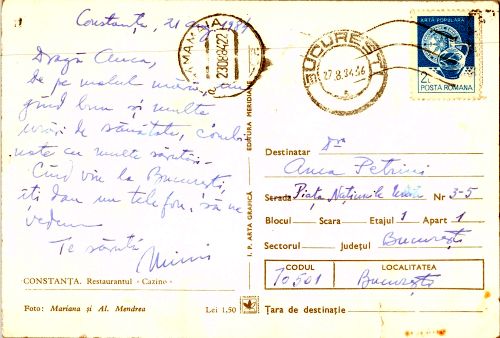 Constanța, 21 aug 1984
Dragă Anca,
De pe malul mării un
gînd bun și multe
urări de sănătate, combi-
nate cu multe sărutări.
Cînd viu la București,
îți dau un telefon, să ne
vedem
Te sărută
Mimi
CONSTANȚA. Restaurantul - Cazino -
Foto: Mariana și Al. Mendrea
Lei 1,50
I. P. ARTA GRAFICĂ
EDITURA MERIDIANE
MAMAIA
23.08.84.22
BUCUREȘTI
27.8.84.56
ARTA POPULARA
2L
POSTA ROMANA
Destinatar Dr
Anca Petrini
Strada Piața Națiunile Unite Nr 3-5
Blocul Scara Etajul 1 Apart 1
Sectorul Județul București
CODUL LOCALITATEA
70501 București
Țara de destinație